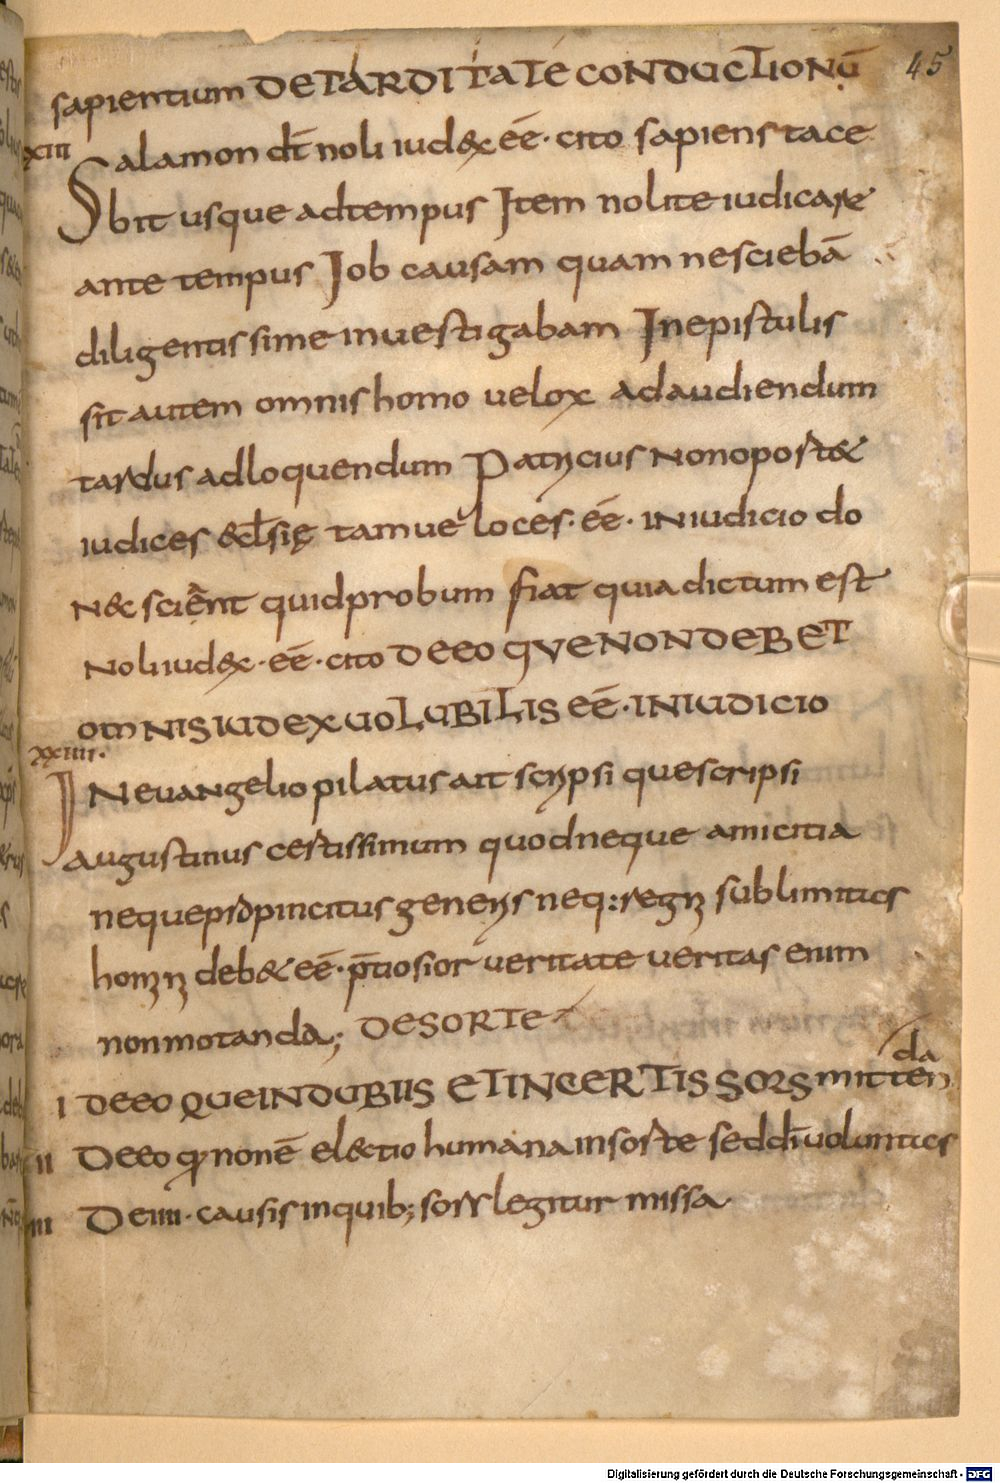 45
sapientium DE TARDITATE CONDUCTIONŪ
XIII Salamon dt̄ noli iud&x eē· cito sapiens tace
bit usque adtempus Item nolite iudicare
ante tempus Job causam quam nesciebā
diligentissime inuestigabam Inepistulis
sit autem omnis homo uelox adaudiendum
tardus adloquendum Patricius non oport&
iudices &cl̄się tam ueloces· eē· iniudicio do
n& scient quidprobum fiat quia dictum est
Noli iud&x· eē· cito DEEO QVE NON DEBET
OMNIS IUDEX UOLUBILIS EĒ· IN IUDICIO
XXIIII·
IN euangelio pilatus ait scripsi que scripsi
Augustinus certissimum quod neque amicitia
neque propincitus generis neq: regni sublimitas
homini deb& eē· p̄tiosior ueritate ueritas enim
non motanda; DE SORTE
da
I DEEO QUE IN DUBIIS ET INCERTIS SORS mitten
II Deeo qđ non ē el&tio humana insorte sed dī uoluntas
III De IIII· causis in quib; sors legitur missa·
Digitalisierung gefördert durch die Deutsche Forschungsgemeinschaft - DFG